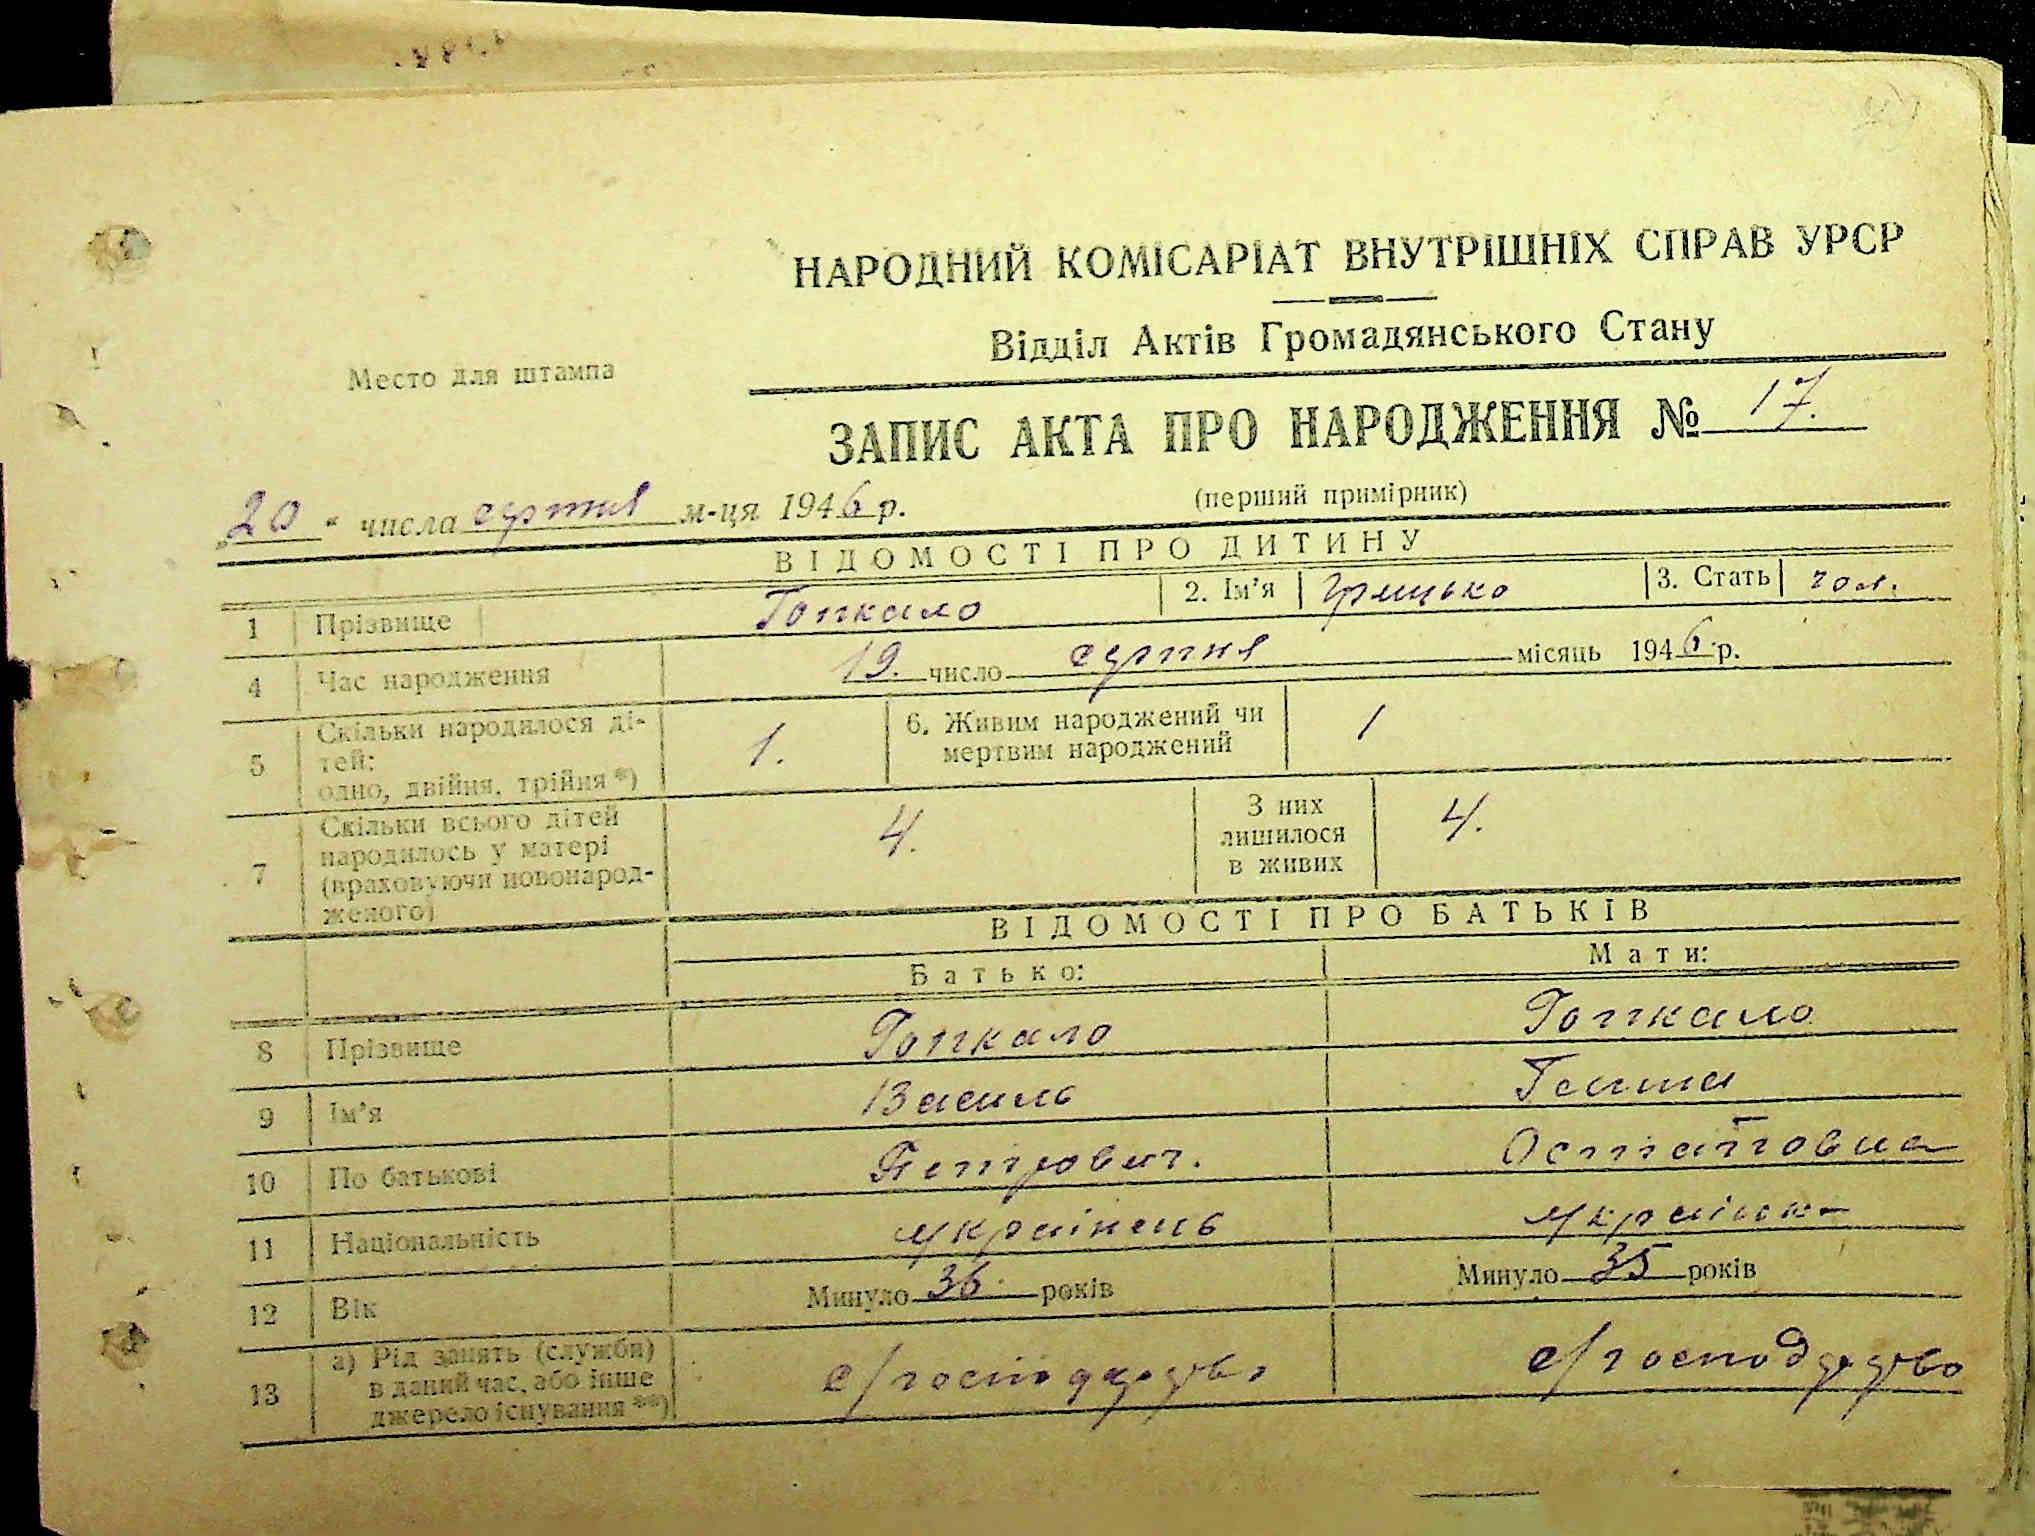 НАРОДНИЙ КОМІСАРІАТ ВНУТРІШНІХ СПРАВ УРСР
Відділ Актів Громадянського Стану
Место для штампа
ЗАПИС АКТА ПРО НАРОДЖЕННЯ № 17.
(перший примірник)
„20" числа серпня м-ця 1946 р.
ВІДОМОСТІ ПРО ДИТИНУ
1 Прізвище Гопкало 2. Ім'я Грицько 3. Стать чол.
4 Час народження 19. число серпня місяць 1946 р.
5 Скільки народилося ді-
тей:
одно, двійня, трійня *) 1. 6. Живим народжений чи
мертвим народжений 1
7 Скільки всього дітей
народилось у матері
(враховуючи новонарод-
женого) 4. З них
лишилося
в живих 4.
ВІДОМОСТІ ПРО БАТЬКІВ
Батько: Мати:
8 Прізвище Гопкало Гопкало
9 Ім'я Василь Ганна
10 По батькові Петрович. Остаповна
11 Національність українець українка
12 Вік Минуло 36 років Минуло 35 років
13 а) Рід занять (служби)
в даний час, або інше
джерело існування **) с/господарство с/господарство